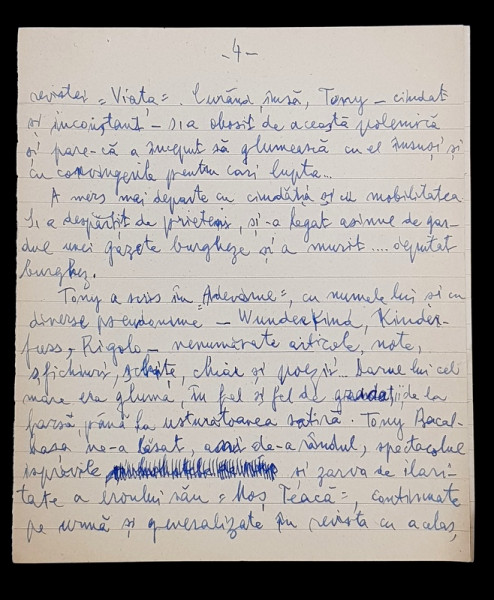 - 4 -
revistei "Viața". Curând însă, Tony - ciudat
și inconstant - s-a obosit de această polemică
și pare-că a început să glumească cu el însuși și
cu convingerile pentru cari lupta...
A mers mai departe cu ciudățeni și cu mobilitatea
S-a despărțit de prieteni, și-a legat asinul de gar-
dul unei gazete burgheze și a murit .... deputat
burghez.
Tony a scris în "Adevărul", cu numele lui și cu
diverse pseudonime - Wunderkind, Kinder-
fuss, Rigolo - nenumărate articole, note,
sfichiuri, schițe, chiar și poezii... Darul lui cel
mare era gluma, în fel și fel de gradații, de la
farsă, până la usturătoarea satiră. Tony Bacal-
bașa ne-a lăsat, de-a rândul, spectacolul
isprăvile și zarva de ilari-
tate a eroului său "Moș Teacă", continuate
pe urmă și generalizate în revista cu același,